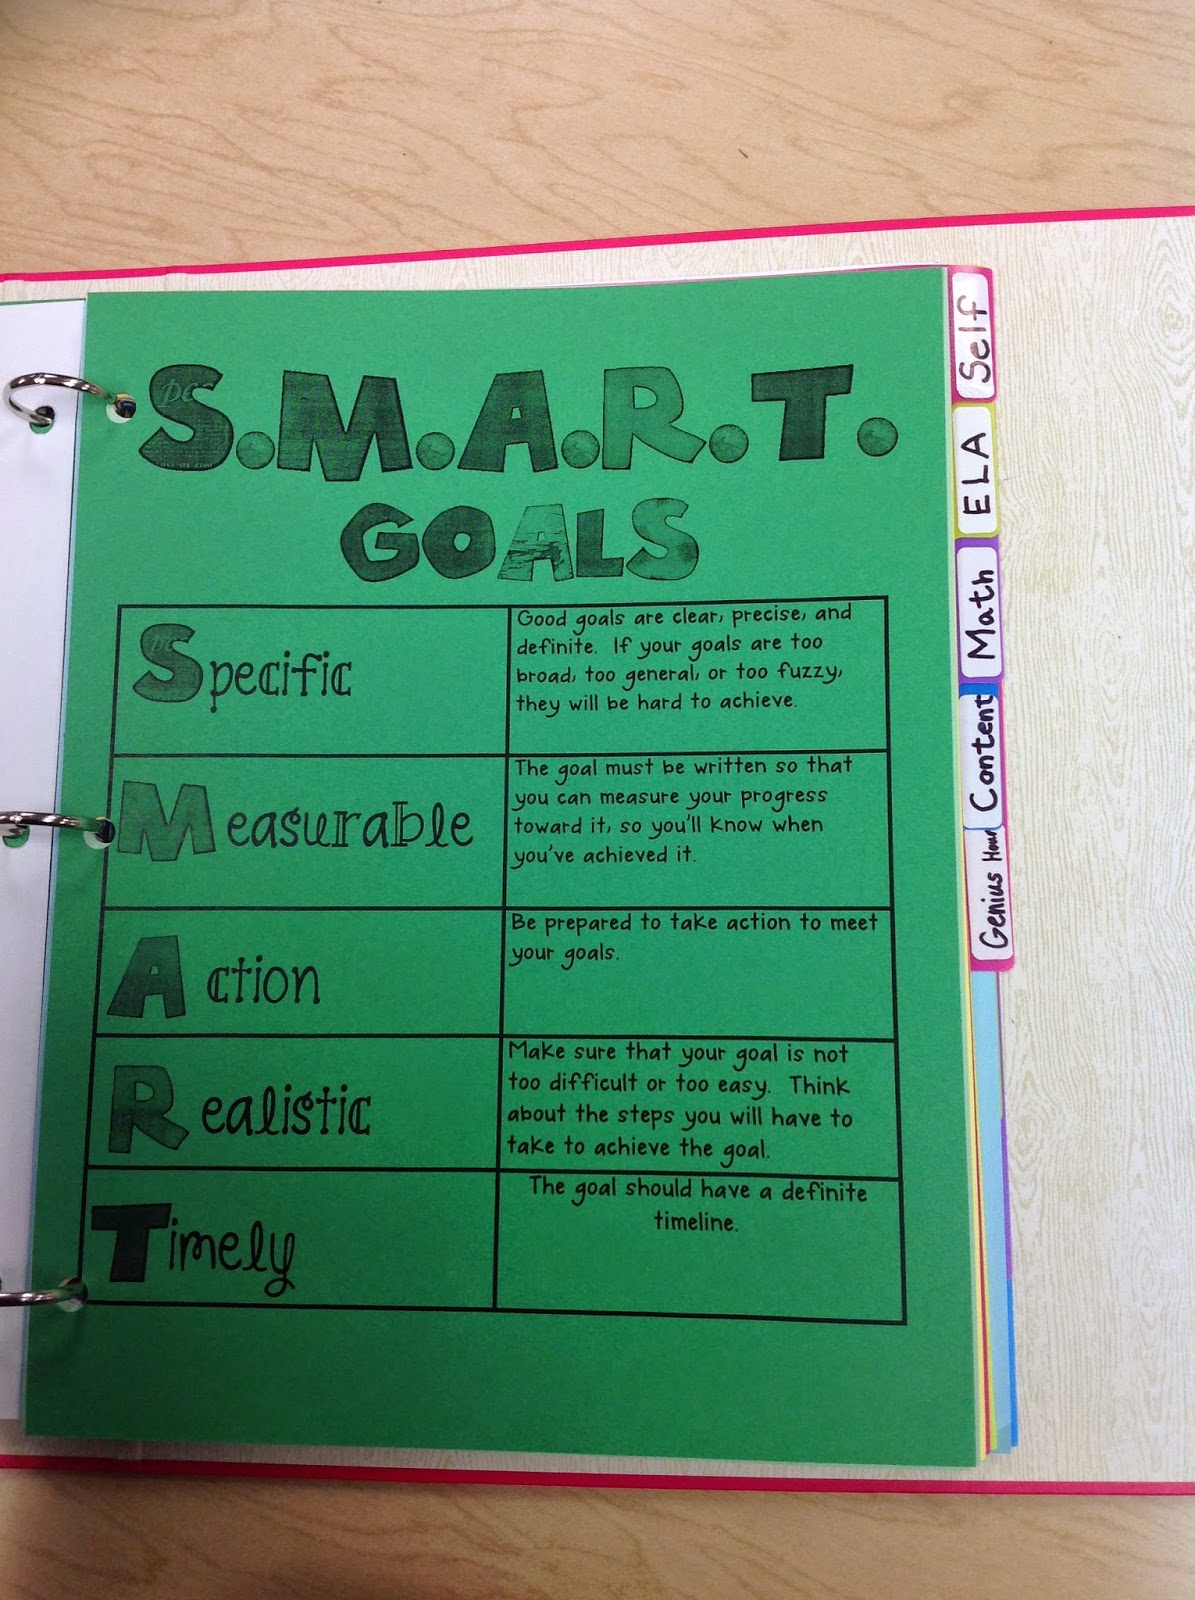 S.M.A.R.T.
GOALS
Specific
Good goals are clear, precise, and
definite. If your goals are too
broad, too general, or too fuzzy,
they will be hard to achieve.
Measurable
The goal must be written so that
you can measure your progress
toward it, so you'll know when
you've achieved it.
Action
Be prepared to take action to meet
your goals.
Realistic
Make sure that your goal is not
too difficult or too easy. Think
about the steps you will have to
take to achieve the goal.
Timely
The goal should have a definite
timeline.
Self
ELA
Math
Content
Genius Hour